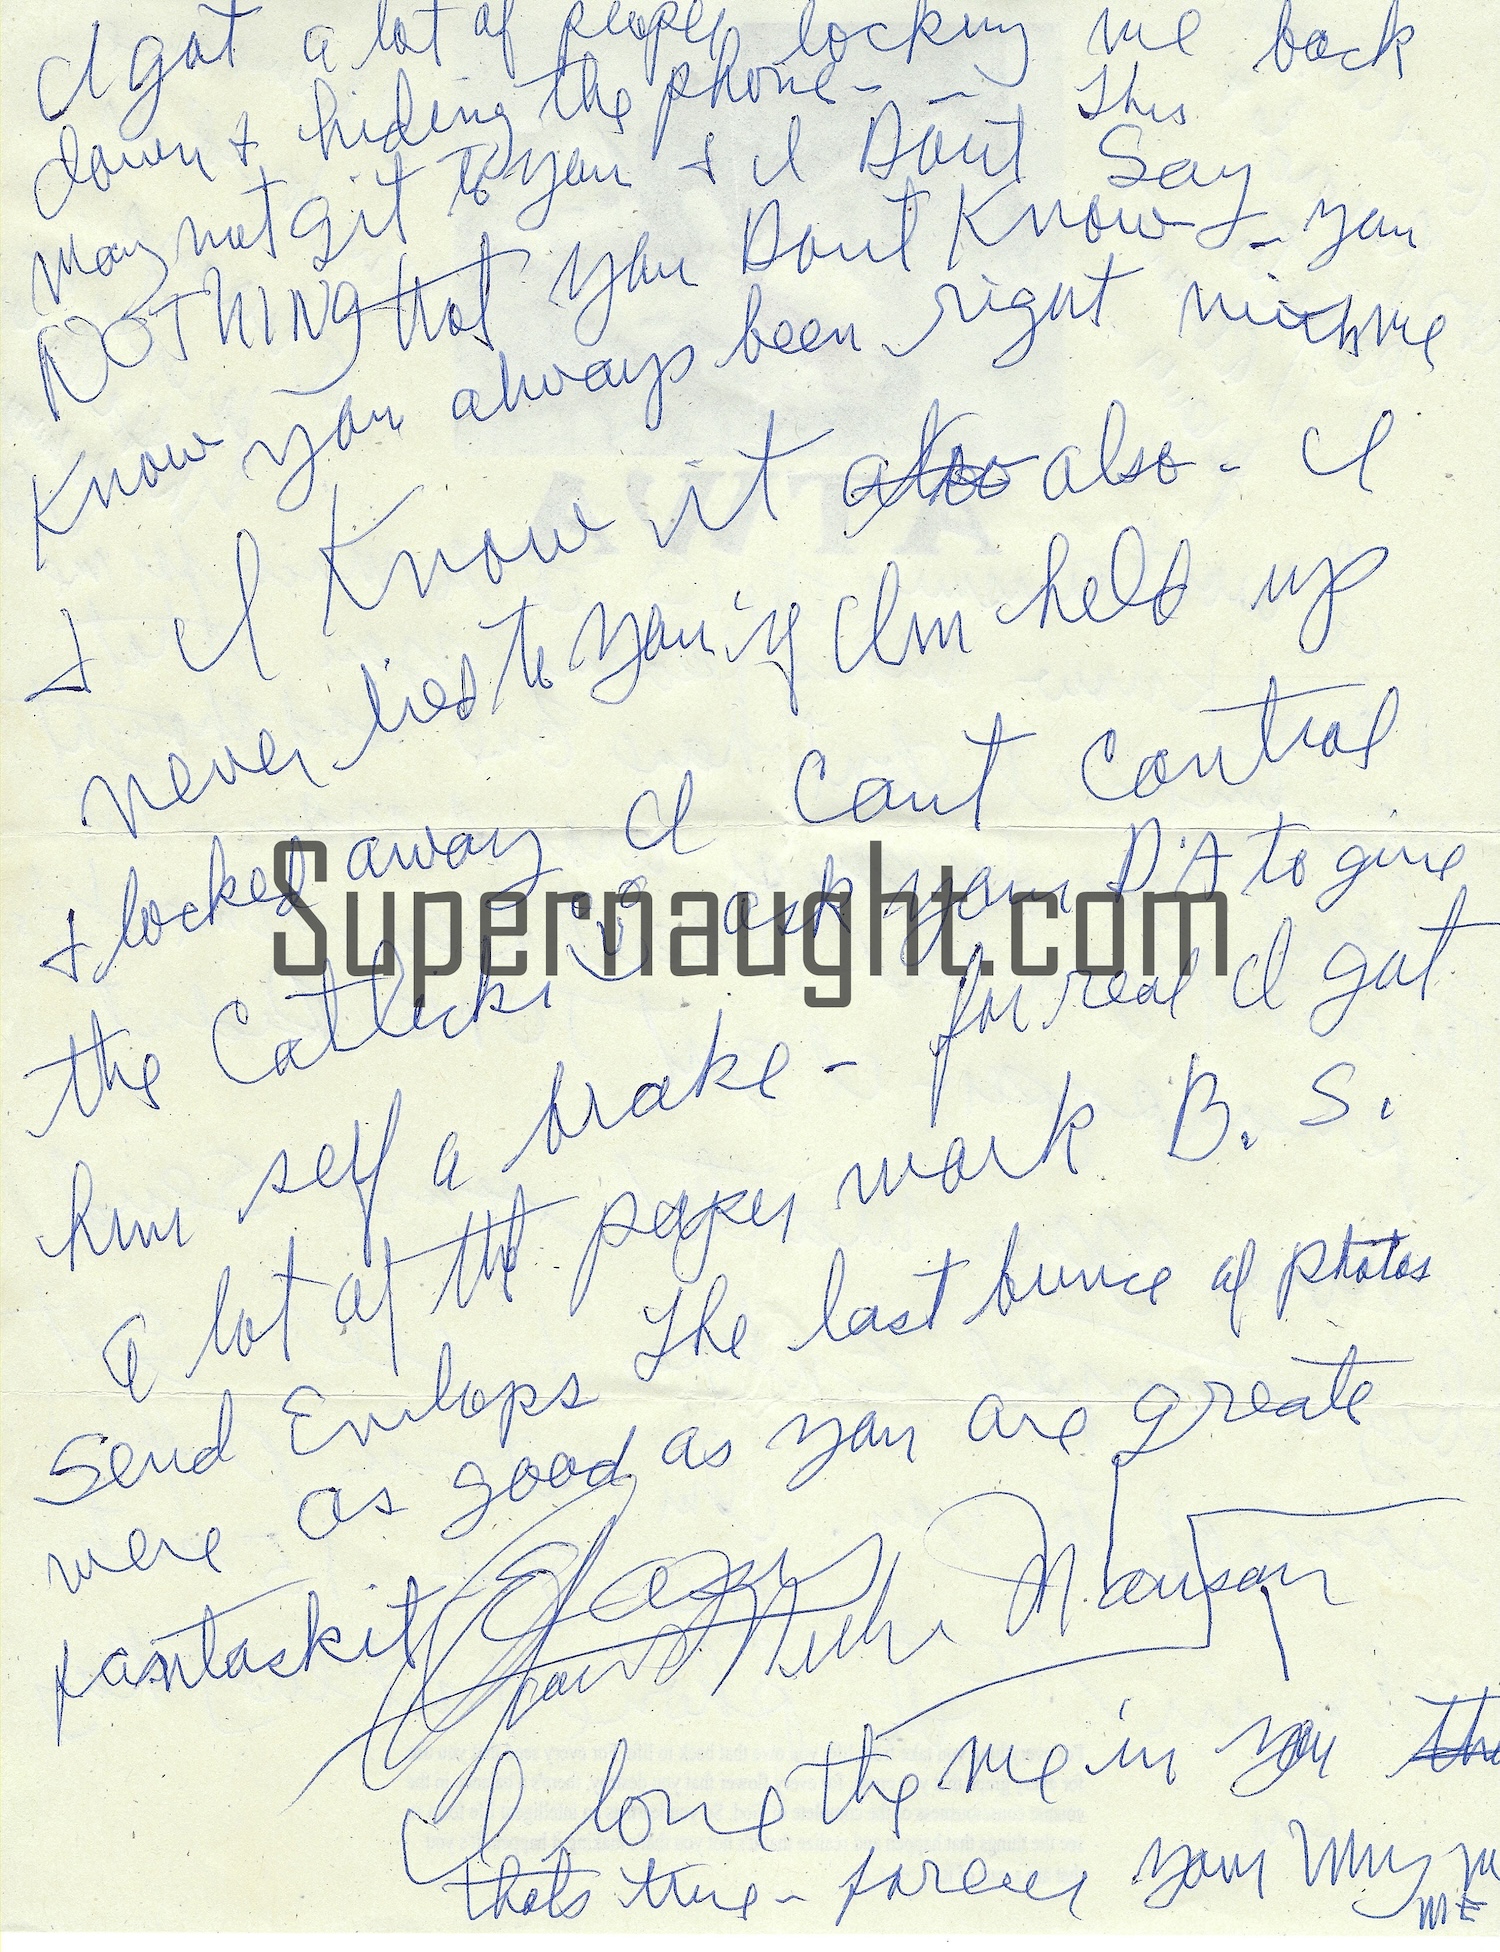 I got a lot of people locking me back
down & hiding the phone - - This
may not git to you & I Dont Say
NOTHING that you Dont Know - you
Know you always been right
& I Know it also - I
never lied to you if Im held up
& locked away I Cant Control
the so ask your D.A to give
him self a brake - for real I got
a lot of the paper work B. S.
Send Envlops The last bunce of photos
were as good as you are greate
fantaskit
Easy
Manson
I love the me in you the
thats true - forever your
ME
Supernaught.com